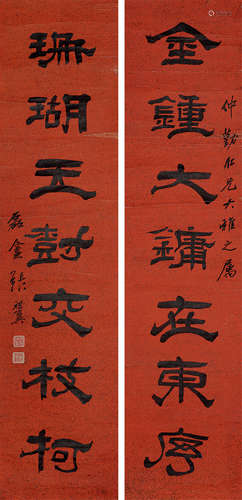 仲勤仁兄大雅之屬
金鍾大鏞在東序
珊瑚玉樹交枝柯
磊盦張祖翼